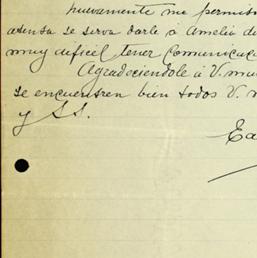 nuevamente me permiso
atensa se serva darle á Amelia de
muy dificil tener Comunicac
Agradeciendole á V. mu
se encuentren bien todos V. m
y SS.
Ea